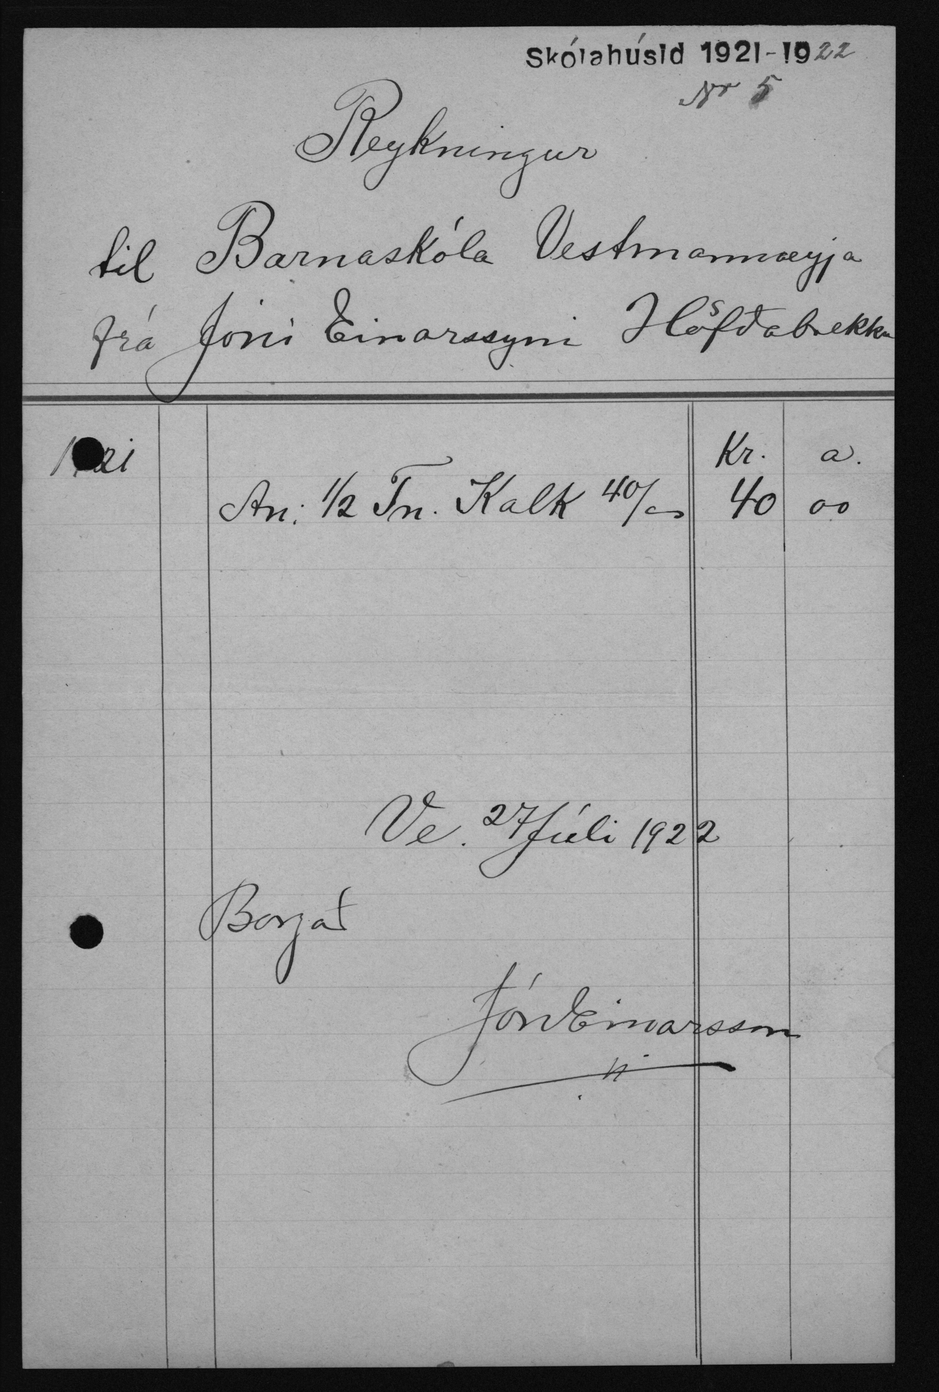 Skólahúsid 1921-1922
Nr 5
Reykningur
til Barnaskóla Vestmannaeyja
frá Jóni Einarssyni Höfðabrekku
1921
Kr. a.
An: 1/2 Tn. Kalk 40/00 40 00
Ve. 27 Júlí 1922
Borgað
Jón Einarsson